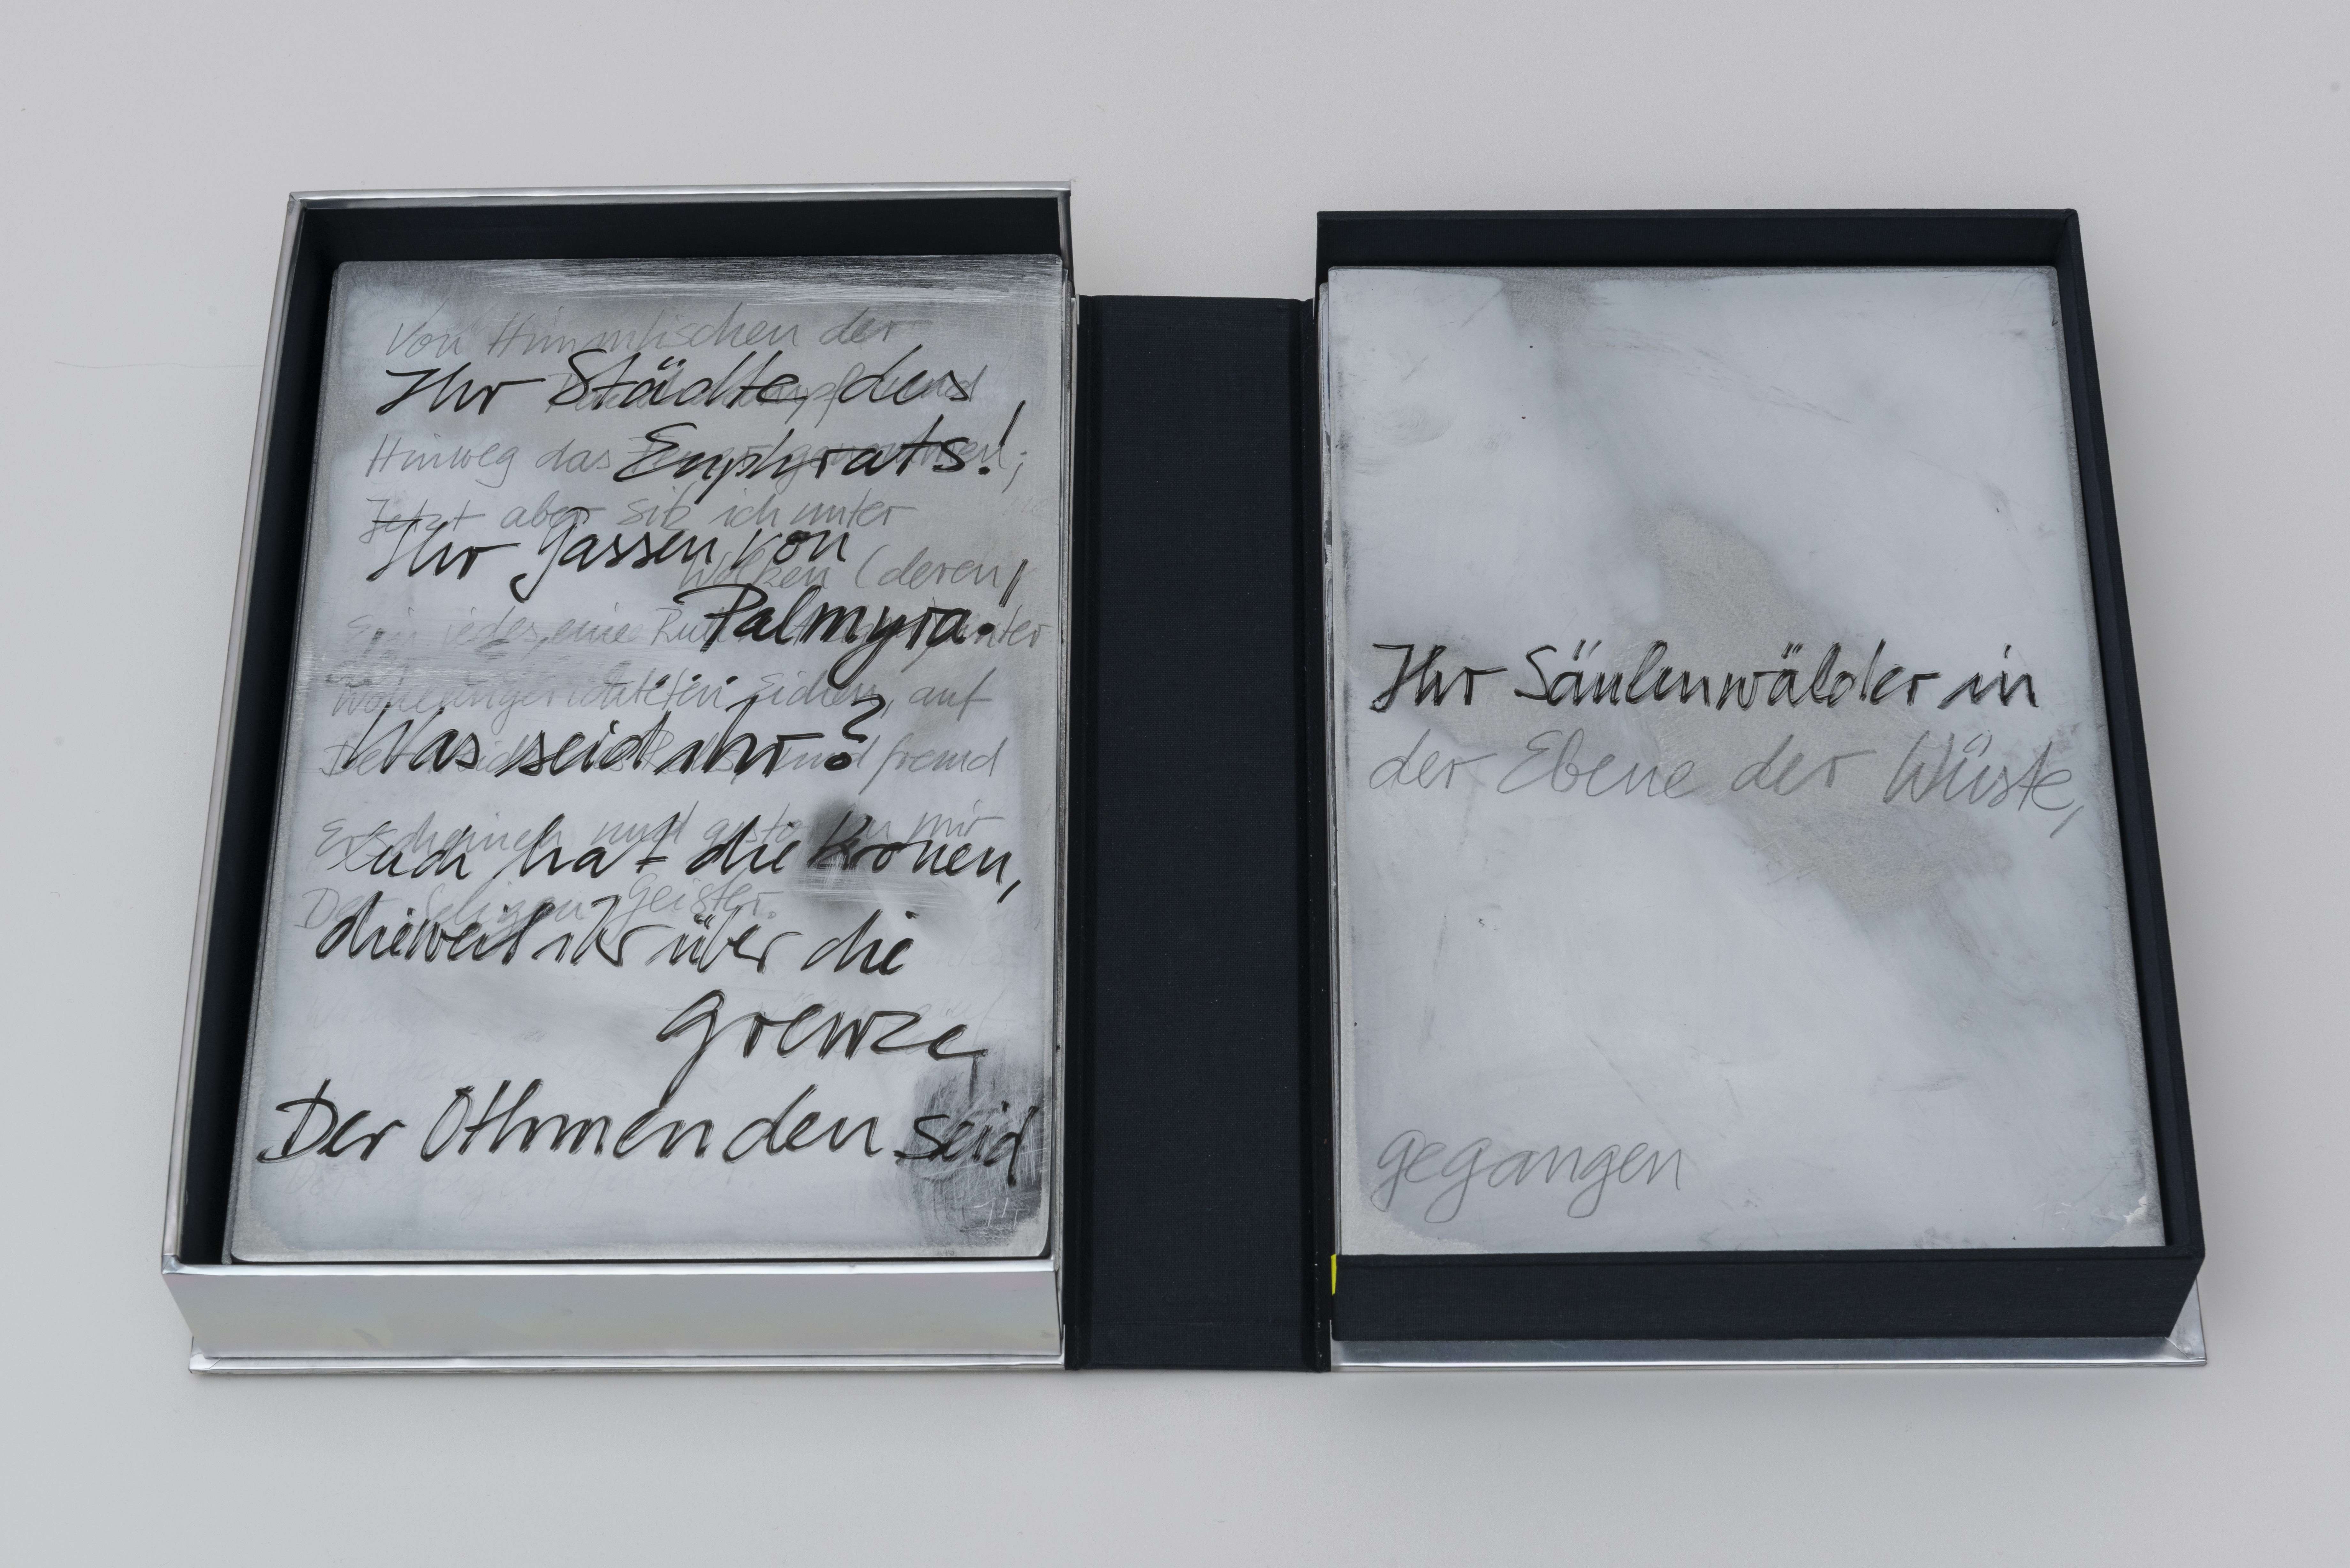 Von Himmlischen der
Ihr Städte des
Hinweg das
Euphrats!
Jetzt aber siz ich unter
Ihr Gassen von
Wolken (deren
Palmyra.
Ein jedes eine
wohleingerichteten Eichen, auf
Was seid ihr?
und fremd
Erscheinen und mir
Euch hat die Kronen,
Der Seligen Geister.
dieweil ihr über die
Grenze
Der Othmenden seid
Ihr Säulenwälder in
der Ebene der Wüste,
gegangen